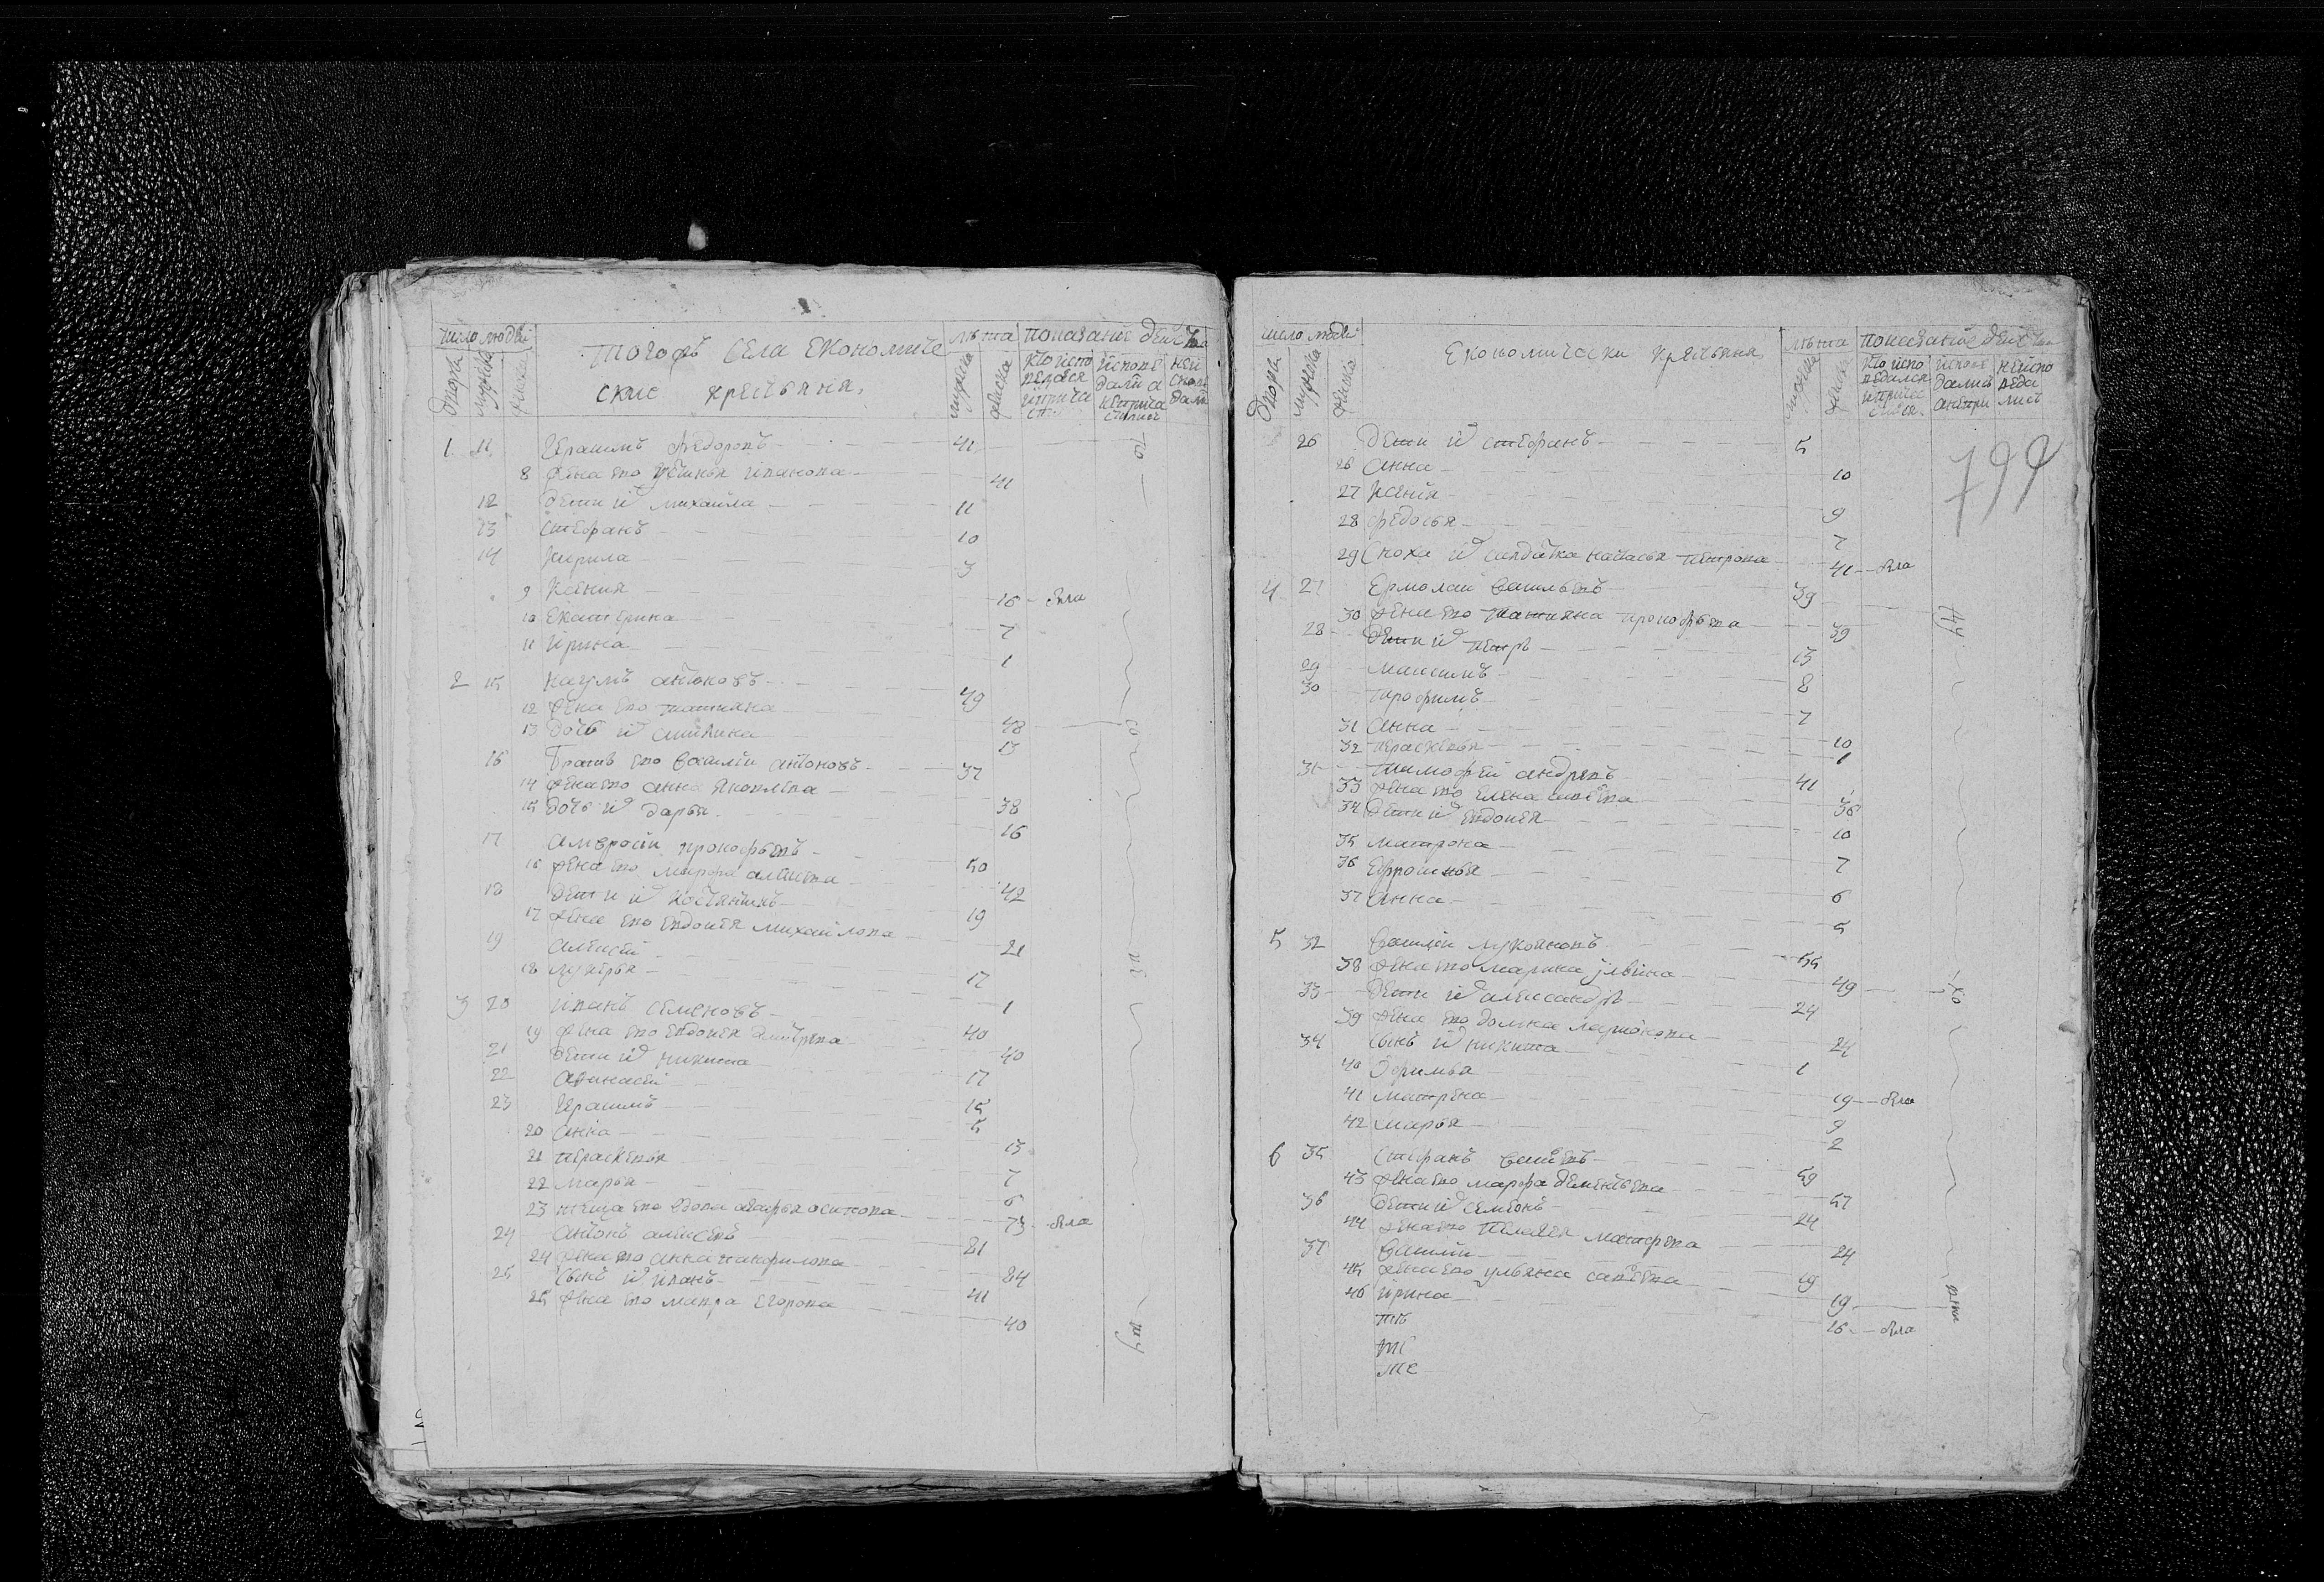 число людей
двора
мужска
женска
тогожъ села Економиче
ские крестьяня.
лѣта
мужска
женска
показание действъ
кто испо
ведался
и прича
ст.
испове
дали а
непричa
стилис
неи
спов
дали
1 11 Герасимъ Федоровъ 41
8 Жена его Устинья Иванова 41
12 Дети их Михаила 11
13 Стефанъ 10
14 Кирила 3
9 Ксения 16 бла
10 Екатерина 7
11 Ирина 1
2 15 Наумъ Антоновъ 49
12 Жена его Татияна 48
13 Дочь их 13
16 Братъ его Василий Антоновъ 37
14 Жена его Анна Яковлева 38
15 Дочь их Дарья 16
17 Амвросий Прокофьевъ 50
16 Жена его Марфа Алексева 42
18 Дети их 19
17 Жена его Евдокея Михайлова 21
19 Алексей 17
18 Лукерья 1
3 20 Иванъ Семеновъ 40
19 Жена его Евдокея Дмитрева 40
21 Дети их Никита 17
22 Афанасей 15
23 Герасимъ 5
20 Анна 13
21 Парасковья 7
22 Марья 6
23 теща его вдова Агафья Осипова 73 бла
24 Антонъ Алексевъ 81
24 Жена его Анна Панфилова 84
25 Сынъ их Иванъ 41
25 Жена его Мавра Егорова 40
число людей
двора
мужска
женска
Економически крестьяня
лѣта
мужска
женска
показание действъ
кто испо
ведался
и приче
стися
испове
дались
а непри
неиспо
веда
лись
799
26 Дети их Стефанъ 5
26 Анна 10
27 Ксения 9
28 Федосья 7
29 Сноха их салдатка Настасья Петрова 41 бла
4 27 Ермолай Васильевъ 39
30 Жена его Татияна Прокофьева 39
28 Дети их Петръ 13
29 Максимъ 8
30 Трофимъ 7
31 Анна 10
32 Парасковья 1
31 Тимофей Андревъ 41
33 Жена его Елена 36
34 Дети их Евдокея 10
35 Матрона 7
36 Ефросинья 6
37 Анна 5
5 32 Василий Лукояновъ 55
38 Жена его Марина 49
33 Дети их Александръ 24
39 Жена его Домна Ларионова 24
34 Сынъ их Никита 1
40 19 бла
41 Матрена 9
42 Марья 2
6 35 Стефанъ 59
43 Жена его Марфа Дементьева 57
36 Дети их Семенъ 24
44 Жена его Пелагея Матфева 24
37 Василий 19
45 Жена его Ульяна 19
46 Ирина 16 бла